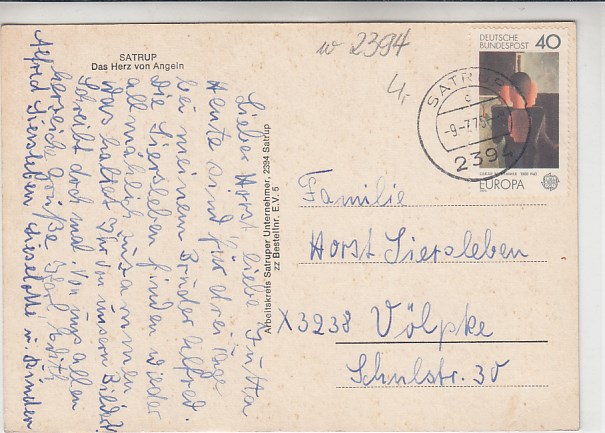 SATRUP
Das Herz von Angeln
Lieber Horst, liebe Jutta
Heute sind für drei Tage
bei meinem Bruder Alfred.
Die Siersleben finden wieder
allmählich zusammen
Was haltet Ihr von unsern Bilder
Schreibt doch mal. Von uns allen
herzliche Grüße Edith
Alfred Siersleben Liselotte u. Kinder
Arbeitskreis Satruper Unternehmer, 2394 Satrup
zz Bestellnr. E.V. 5
w 2394
4,-
DEUTSCHE
BUNDESPOST 40
SATRUP
c
-9-7.75
2394
EUROPA
Familie
Horst Siersleben
X3238 Völpke
Schulstr. 30